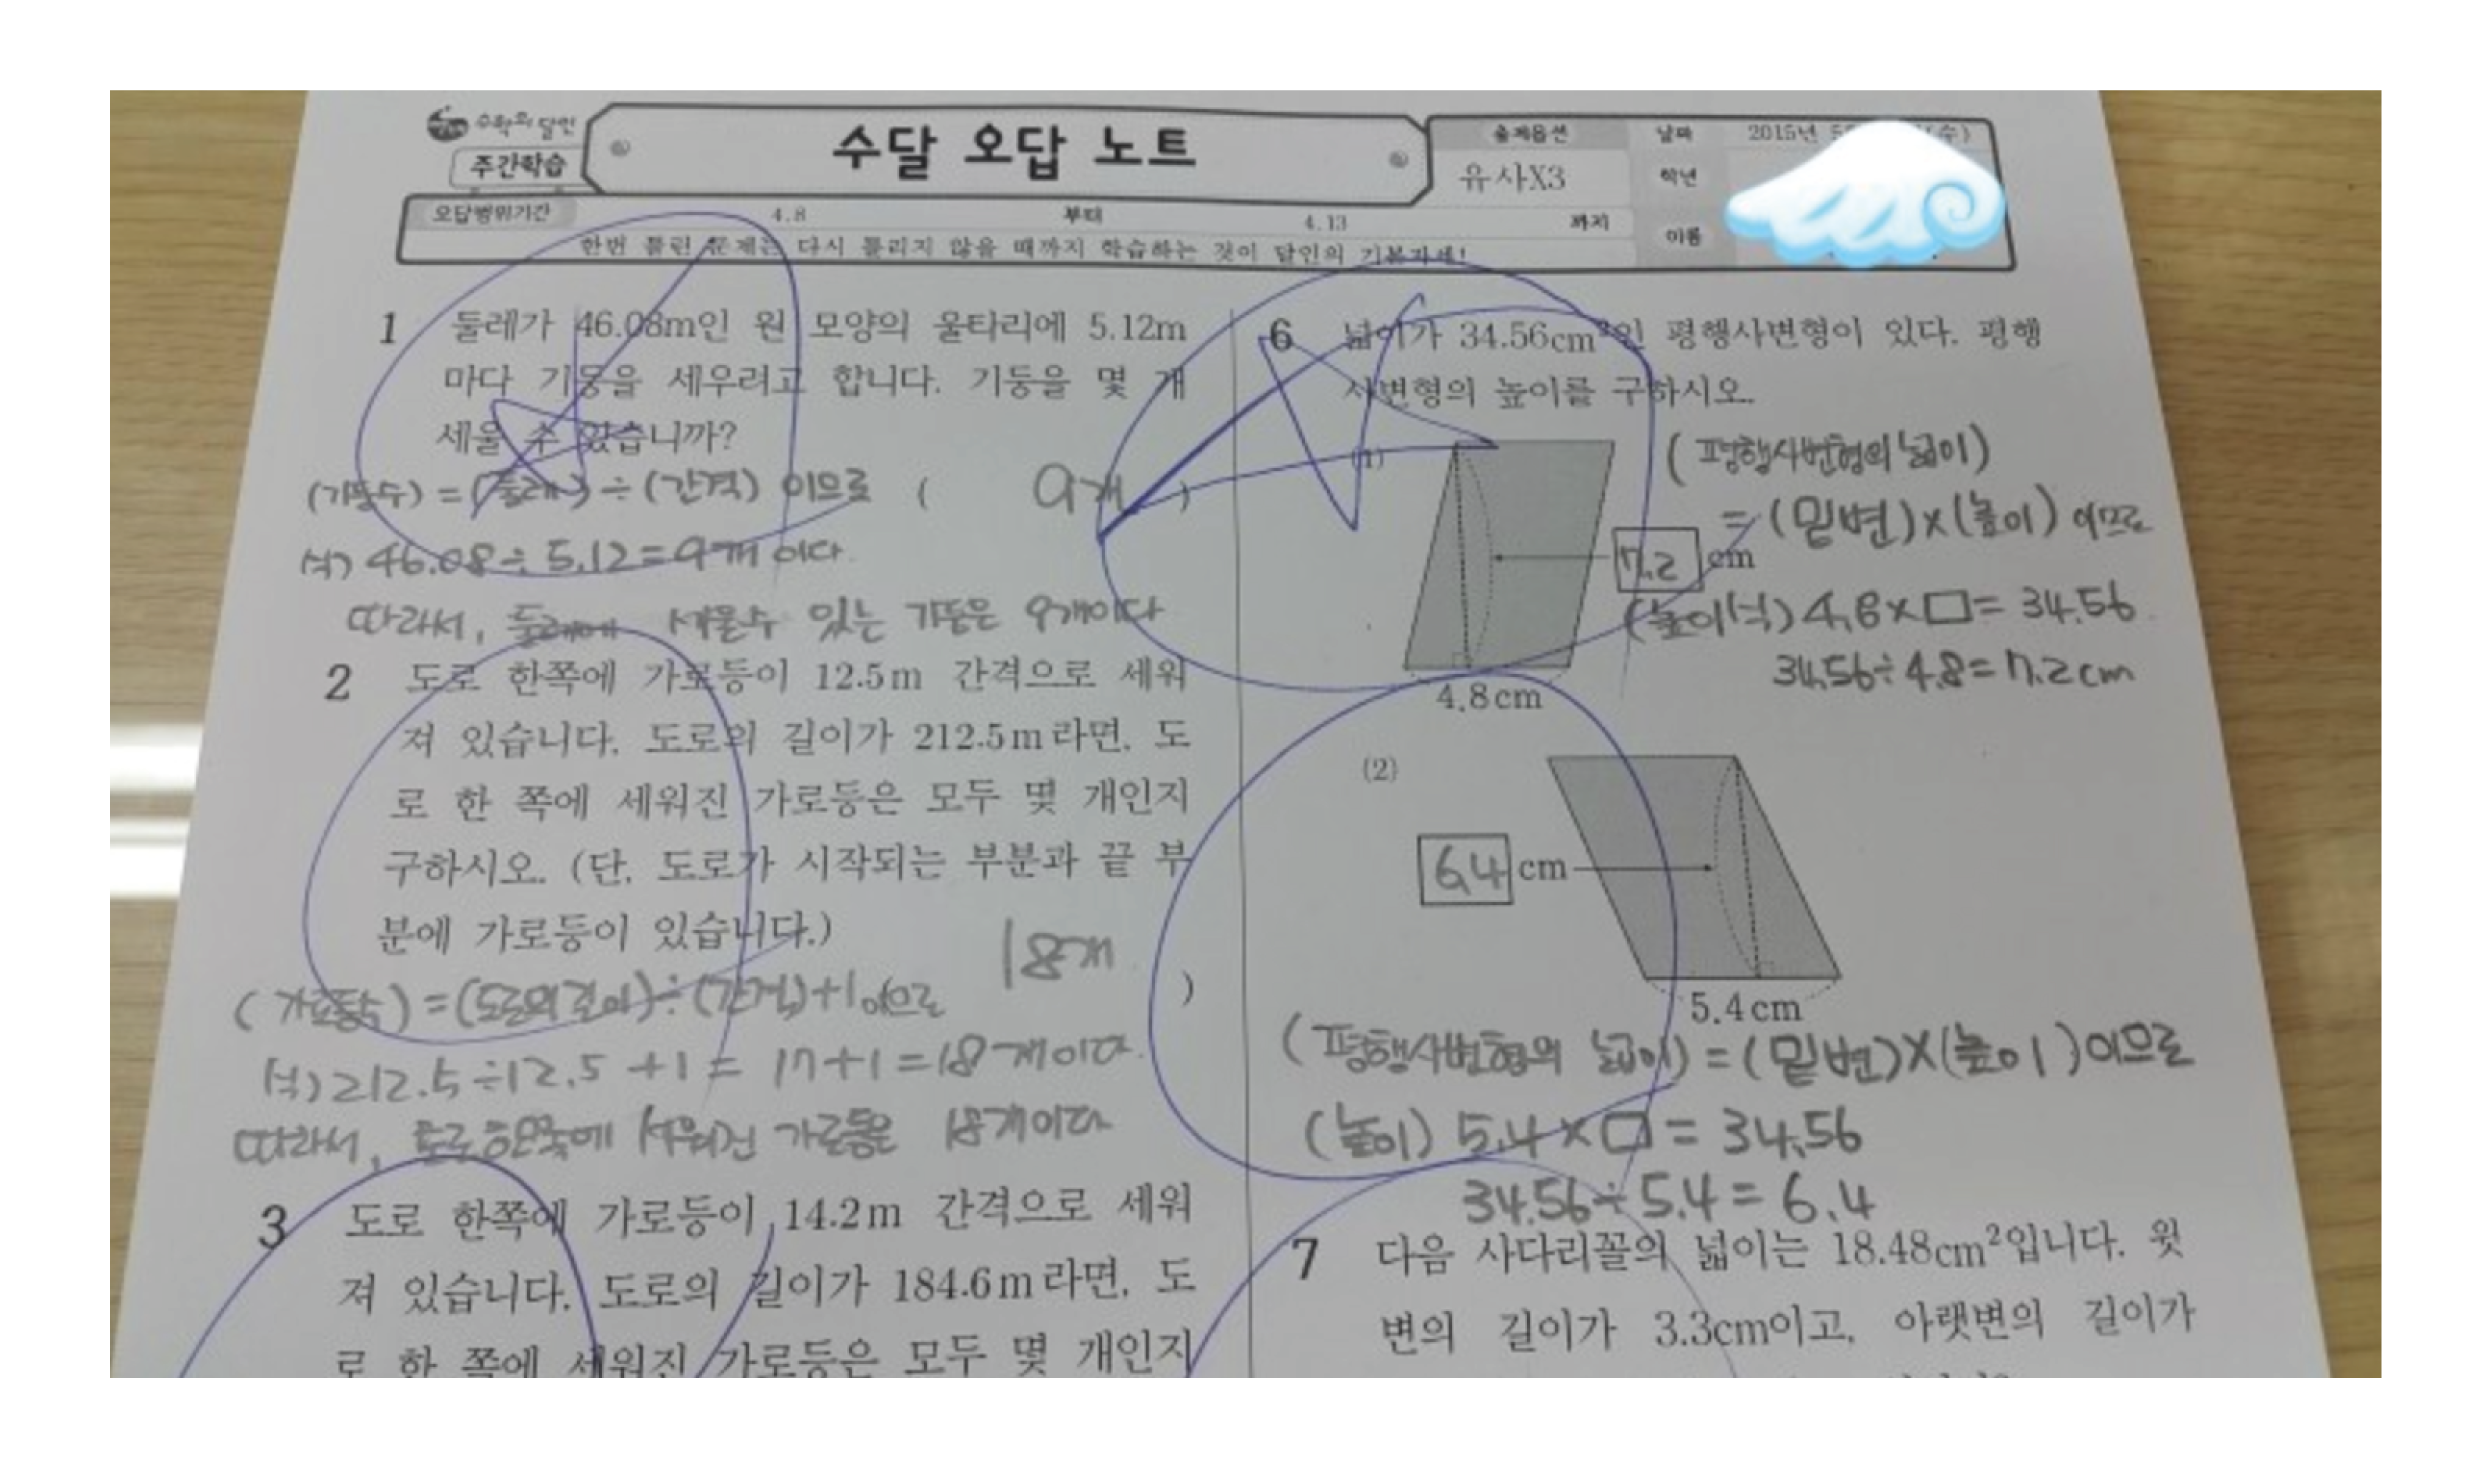 수학의 달인
주간학습
수달 오답 노트
출제옵션 날짜 2015년
유사X3 학년
이름
오답범위기간 4.8 부터 4.13 까지
한번 틀린 문제는 다시 틀리지 않을 때까지 학습하는 것이 달인의 기본자세!
1 둘레가 46.08m인 원 모양의 울타리에 5.12m
마다 기둥을 세우려고 합니다. 기둥을 몇 개
세울 수 있습니까?
(기둥수) = (둘레) ÷ (간격) 이므로 ( 9개 )
식) 46.08 ÷ 5.12 = 9개 이다.
따라서, 세울수 있는 기둥은 9개이다
2 도로 한쪽에 가로등이 12.5m 간격으로 세워
져 있습니다. 도로의 길이가 212.5m라면, 도
로 한 쪽에 세워진 가로등은 모두 몇 개인지
구하시오. (단, 도로가 시작되는 부분과 끝 부
분에 가로등이 있습니다.)
18개 )
(가로등수) = (도로의 길이) ÷ (간격) + 1 이므로
식) 212.5 ÷ 12.5 + 1 = 17 + 1 = 18개이다.
따라서, 도로 한쪽에 세워진 가로등은 18개이다
3 도로 한쪽에 가로등이 14.2m 간격으로 세워
져 있습니다. 도로의 길이가 184.6m라면, 도
로 한 쪽에 세워진 가로등은 모두 몇 개인지
6 넓이가 34.56cm²인 평행사변형이 있다. 평행
사변형의 높이를 구하시오.
(1)
(평행사변형의 넓이)
= (밑변) × (높이) 이므로
7.2 cm
(높이식) 4.8 × □ = 34.56
34.56 ÷ 4.8 = 7.2cm
4.8cm
(2)
6.4 cm
5.4cm
(평행사변형의 넓이) = (밑변) × (높이) 이므로
(높이) 5.4 × □ = 34.56
34.56 ÷ 5.4 = 6.4
7 다음 사다리꼴의 넓이는 18.48cm²입니다. 윗
변의 길이가 3.3cm이고, 아랫변의 길이가